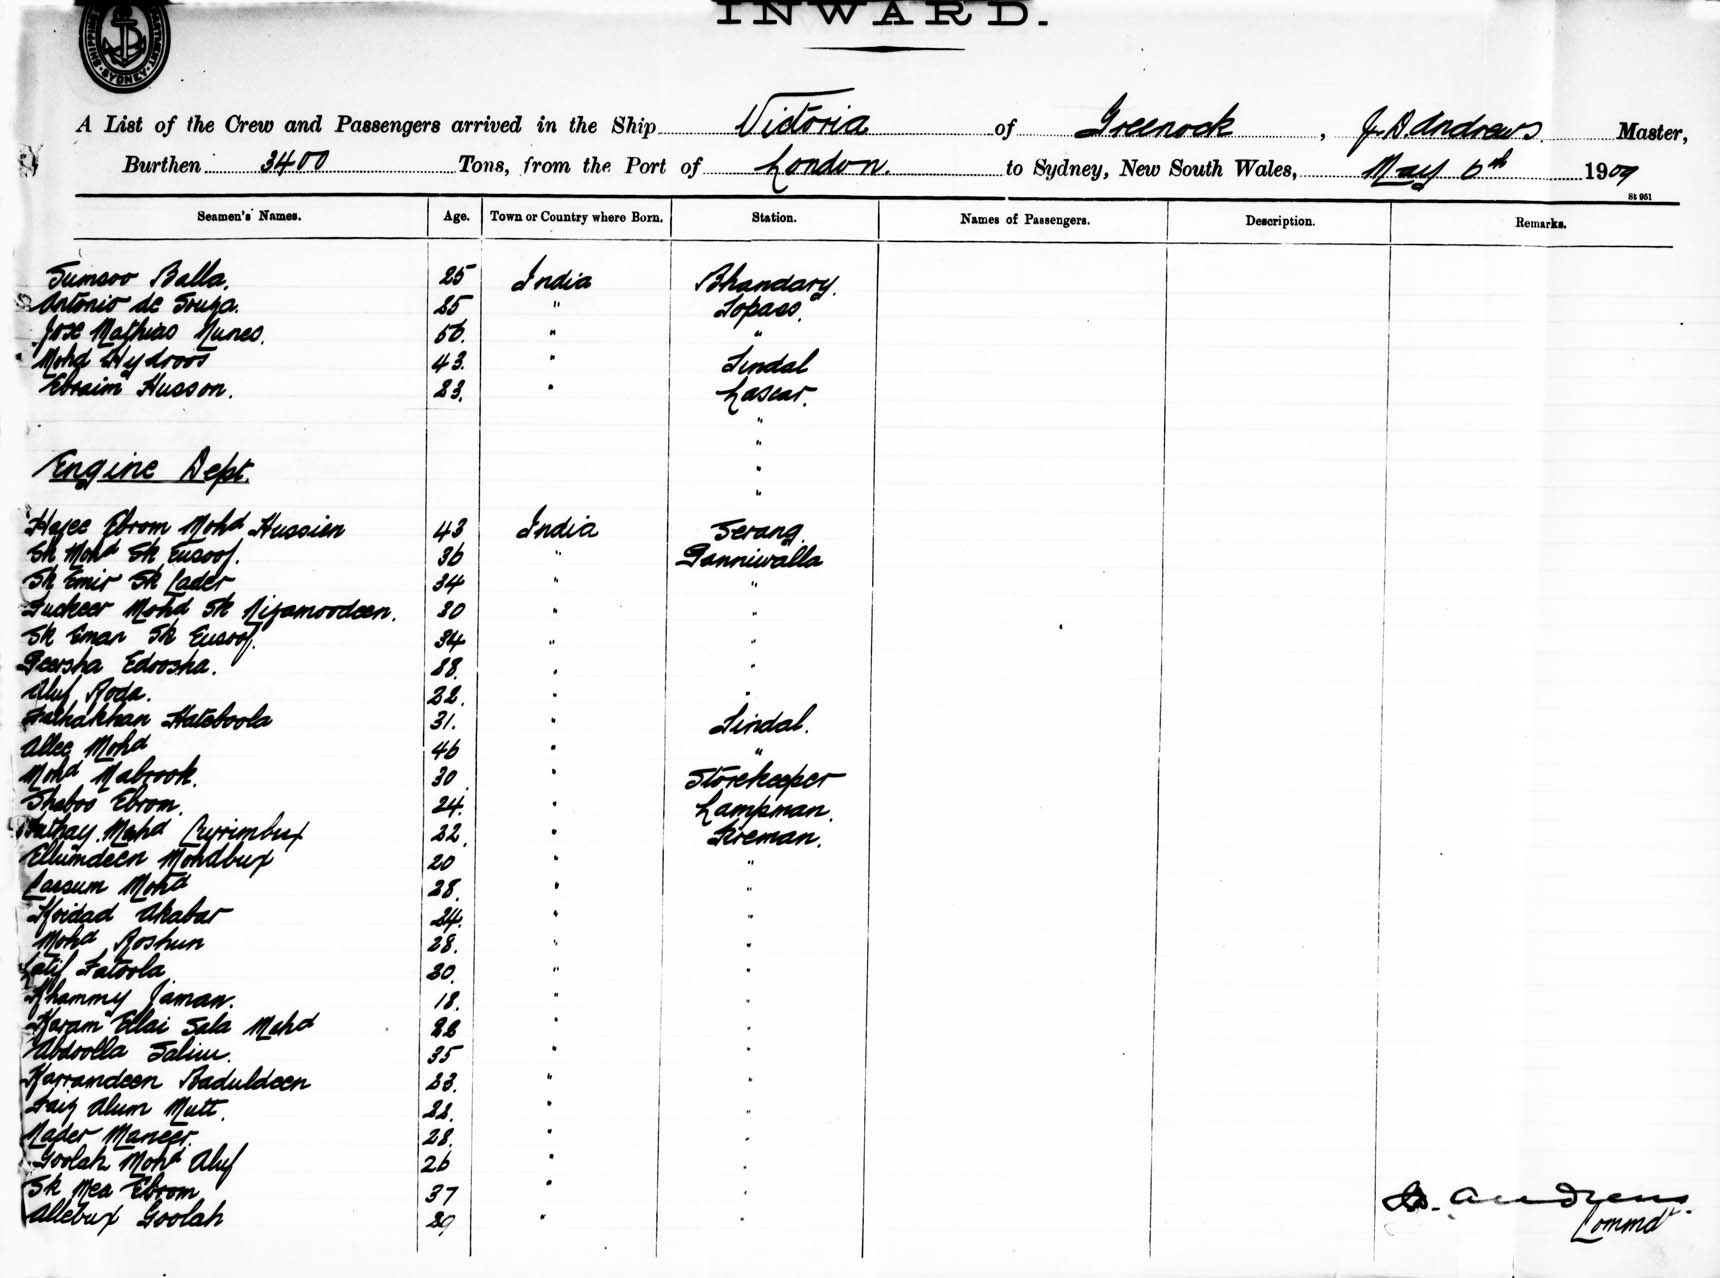 INWARD.
SYDNEY
A List of the Crew and Passengers arrived in the Ship Victoria of Greenock, J. D. Andrews Master,
Burthen 3400 Tons, from the Port of London. to Sydney, New South Wales, May 6th 1909
St 951
Seamen's Names. Age. Town or Country where Born. Station. Names of Passengers. Description. Remarks.
Sumsoo Balla. 25 India Bhandary.
Antonio de Souza. 25 " Topass.
Jose Mathias Nunes. 56. " "
Mohd Hydroos 43. " Tindal
Ebraim Husson. 23. " Lascar.
"
"
Engine Dept. "
"
Hajee Ebrom Mohd Hussien 43 India Serang.
Sk Mohd Sk Eusoof. 36 " Panniwalla
Sk Emir Sk Cader 34 " "
Fuckeer Mohd Sk Nizamoodeen. 30 " "
Sk Eman Sk Eusoof. 34 " "
Peersha Edoosha. 28. " "
Aluf Roda. 22. " "
Fathakhan Hateboola 31. " Tindal.
Allee Mohd 46 " "
Mohd Mabrook. 30 " Storekeeper
Shaboo Ebrom. 24. " Lampman.
Fathay Mahd Curimbux 22. " Fireman.
Ellumdeen Mohdbux 20 " "
Cassum Mohd 28. " "
Khidad Akabar 24. " "
Mohd Roshun 28. " "
Latif Fatoola 20. " "
Khammy Jaman. 18. " "
Karam Ellai Sala Mahd 22 " "
Abdoolla Salim. 35 " "
Karramdeen Baduldeen 23. " "
Faiz Alum Mutt. 22. " "
Nader Maneer. 28. " "
Goolah Mohd Aluf 26 " "
Sk Mea Ebrom 37 " "
Allebux Goolah 29 " "
D. Andrews.
Commdr